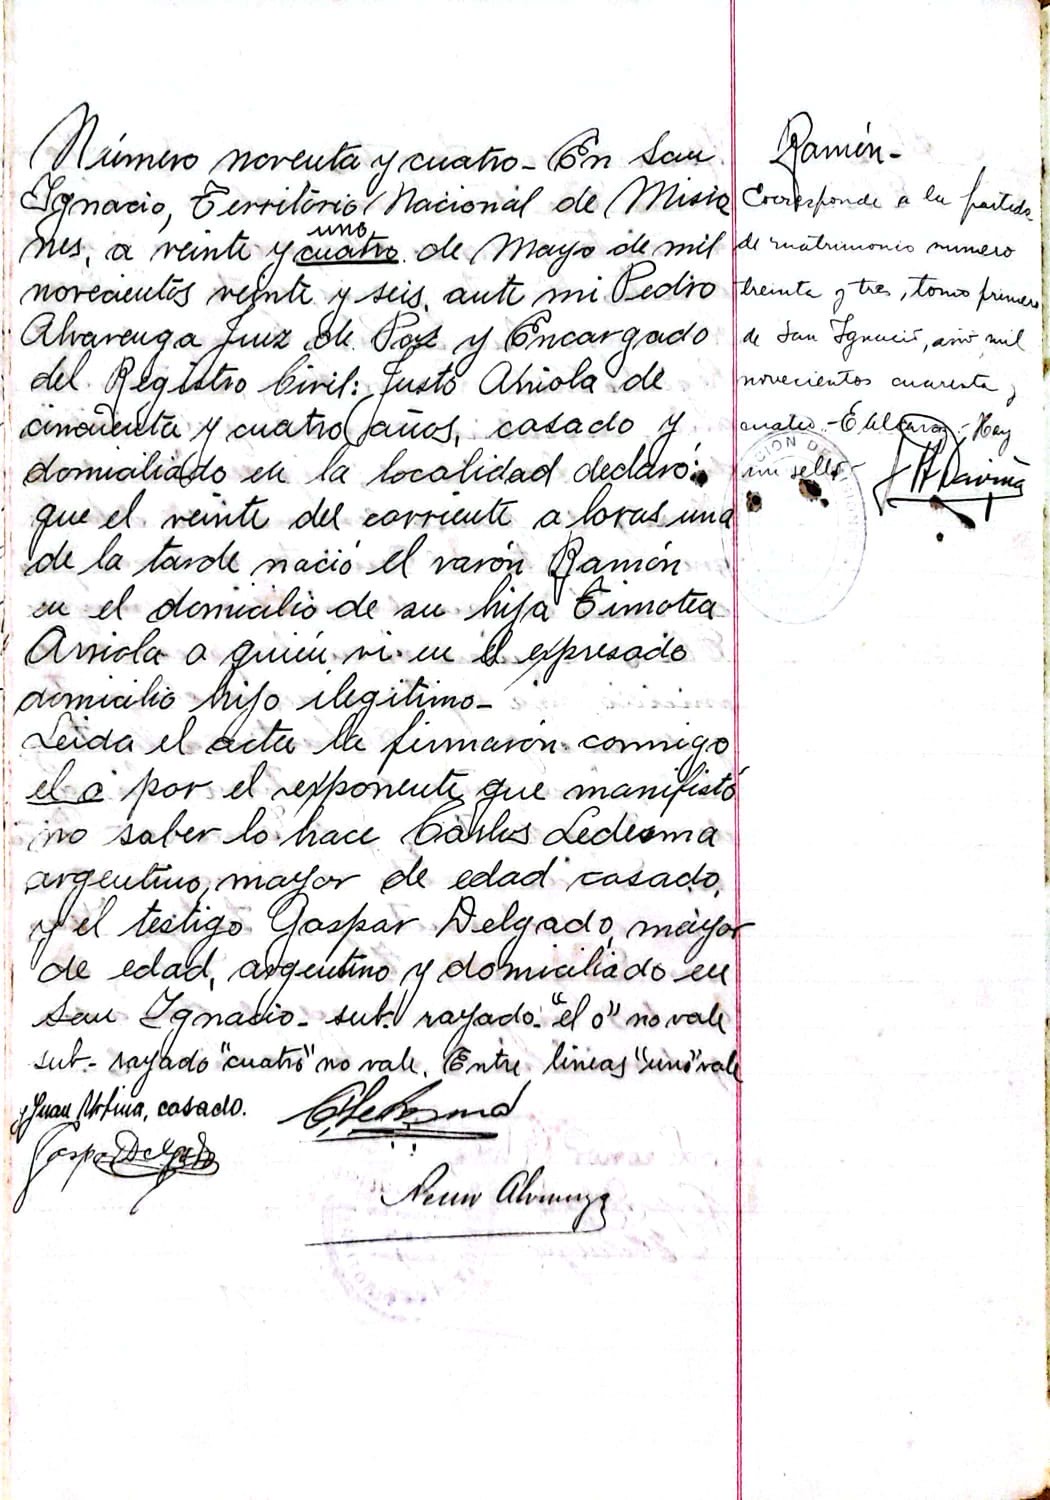 Número noventa y cuatro - En San
Ignacio, Territorio Nacional de Misio
nes, a veinte y cuatro de Mayo de mil
uno
novecientos veinte y seis, ante mi Pedro
Alvarenga Juez de Paz y Encargado
del Registro Civil: Justo Arriola de
cincuenta y cuatro años, casado y
domiciliado en la localidad declaró:
que el veinte del corriente a horas una
de la tarde nació el varón Ramón
en el domicilio de su hija Timotea
Arriola a quién vi en el expresado
domicilio hijo ilegitimo -
Leida el acta la firmaron conmigo
el o por el exponente que manifestó
no saber lo hace Carlos Ledesma
argentino, mayor de edad casado,
y el testigo Gaspar Delgado, mayor
de edad, argentino y domiciliado en
San Ignacio - sub. rayado - "el o" no vale
sub - rayado "cuatro" no vale. Entre lineas "uno" vale
y Juan Urbina, casado.
Gaspar Delgado
CLedesma
Pedro Alvarenga
Ramón -
Corresponde a la partida
de matrimonio numero
treinta y tres, tomo primero
de San Ignacio, año mil
novecientos cuarenta y
cuatro - Hay
un sello -